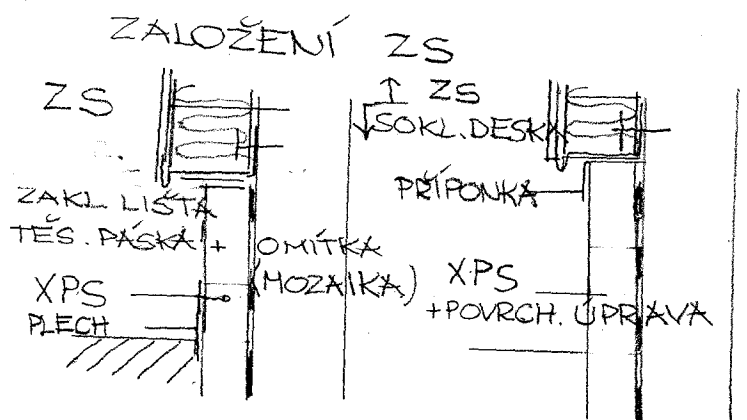 ZALOŽENÍ ZS
ZS
ZÁKL. LIŠTA
TĚS. PÁSKA + OMÍTKA
(MOZAIKA)
XPS
PLECH
ZS
SOKL. DESKA
PŘÍPONKA
XPS
+ POVRCH. ÚPRAVA